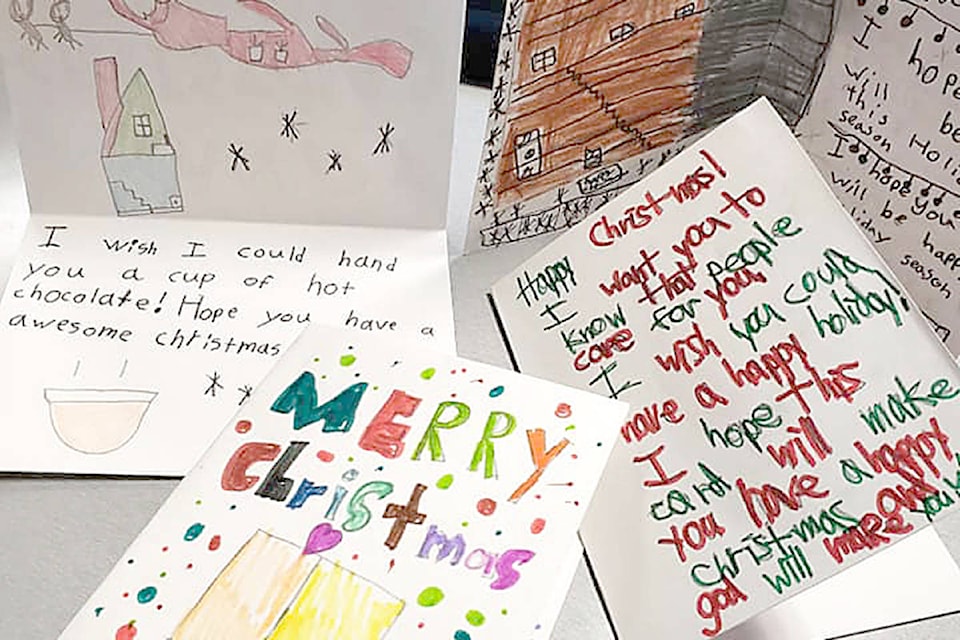 I wish I could hand
you a cup of hot
chocolate! Hope you have a
awesome christmas
MERRY
Christmas
Happy Christmas!
I want you to
know that people
care for you
I wish you could
have a happy holiday!
I hope this
card will make
you have a happy
Christmas and
god will make you
I hope
will be
this Holi
season
I hope your
will be happ
liday
season